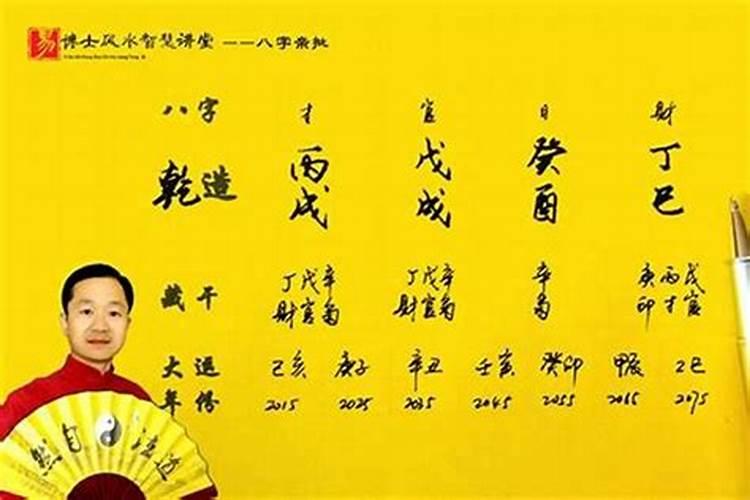 易 博士风水智慧讲堂 ——八字亲批
八字 才 官 日 财
乾造 丙 戊 癸 丁
戌 戌 酉 巳
藏干 丁戊辛 丁戊辛 辛 庚丙戊
财官枭 财官枭 枭 印才官
大运 己亥 庚子 辛丑 壬寅 癸卯 甲辰 乙巳
年份 2015 2025 2035 2045 2055 2065 2075
然自法道